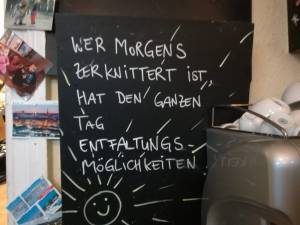 WER MORGENS
ZERKNITTERT IST,
HAT DEN GANZEN
TAG
ENTFALTUNGS-
MÖGLICHKEITEN.